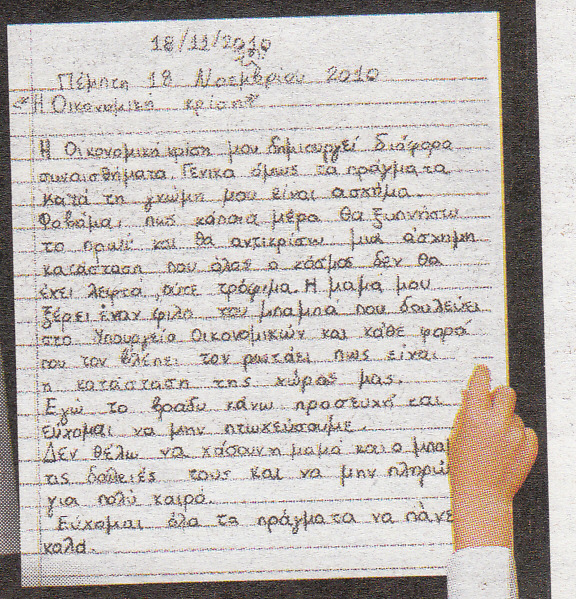 18/11/2010
Πέμπτη 18 Νοεμβρίου 2010
"Η Οικονομική κρίση"
Η Οικονομική κρίση μου δημιουργεί διάφορα
συναισθήματα. Γενικά όμως τα πράγματα
κατά τη γνώμη μου είναι άσχημα.
Φοβάμαι, πως κάποια μέρα θα ξυπνήσω
το πρωί και θα αντικρίσω μια άσχημη
κατάσταση που όλος ο κόσμος δεν θα
έχει λεφτά, ούτε τρόφιμα. Η μαμά μου
ξέρει έναν φίλο του μπαμπά που δουλεύει
στο Υπουργείο Οικονομικών και κάθε φορά
που τον βλέπει τον ρωτάει πως είναι
η κατάσταση της χώρας μας.
Εγώ το βράδυ κάνω προσευχή και
εύχομαι να μην πτωχεύσουμε.
Δεν θέλω να χάσουν η μαμά και ο μπαμ
τις δουλειές τους και να μην πληρω
για πολύ καιρό.
Εύχομαι όλα τα πράγματα να πάνε
καλά.